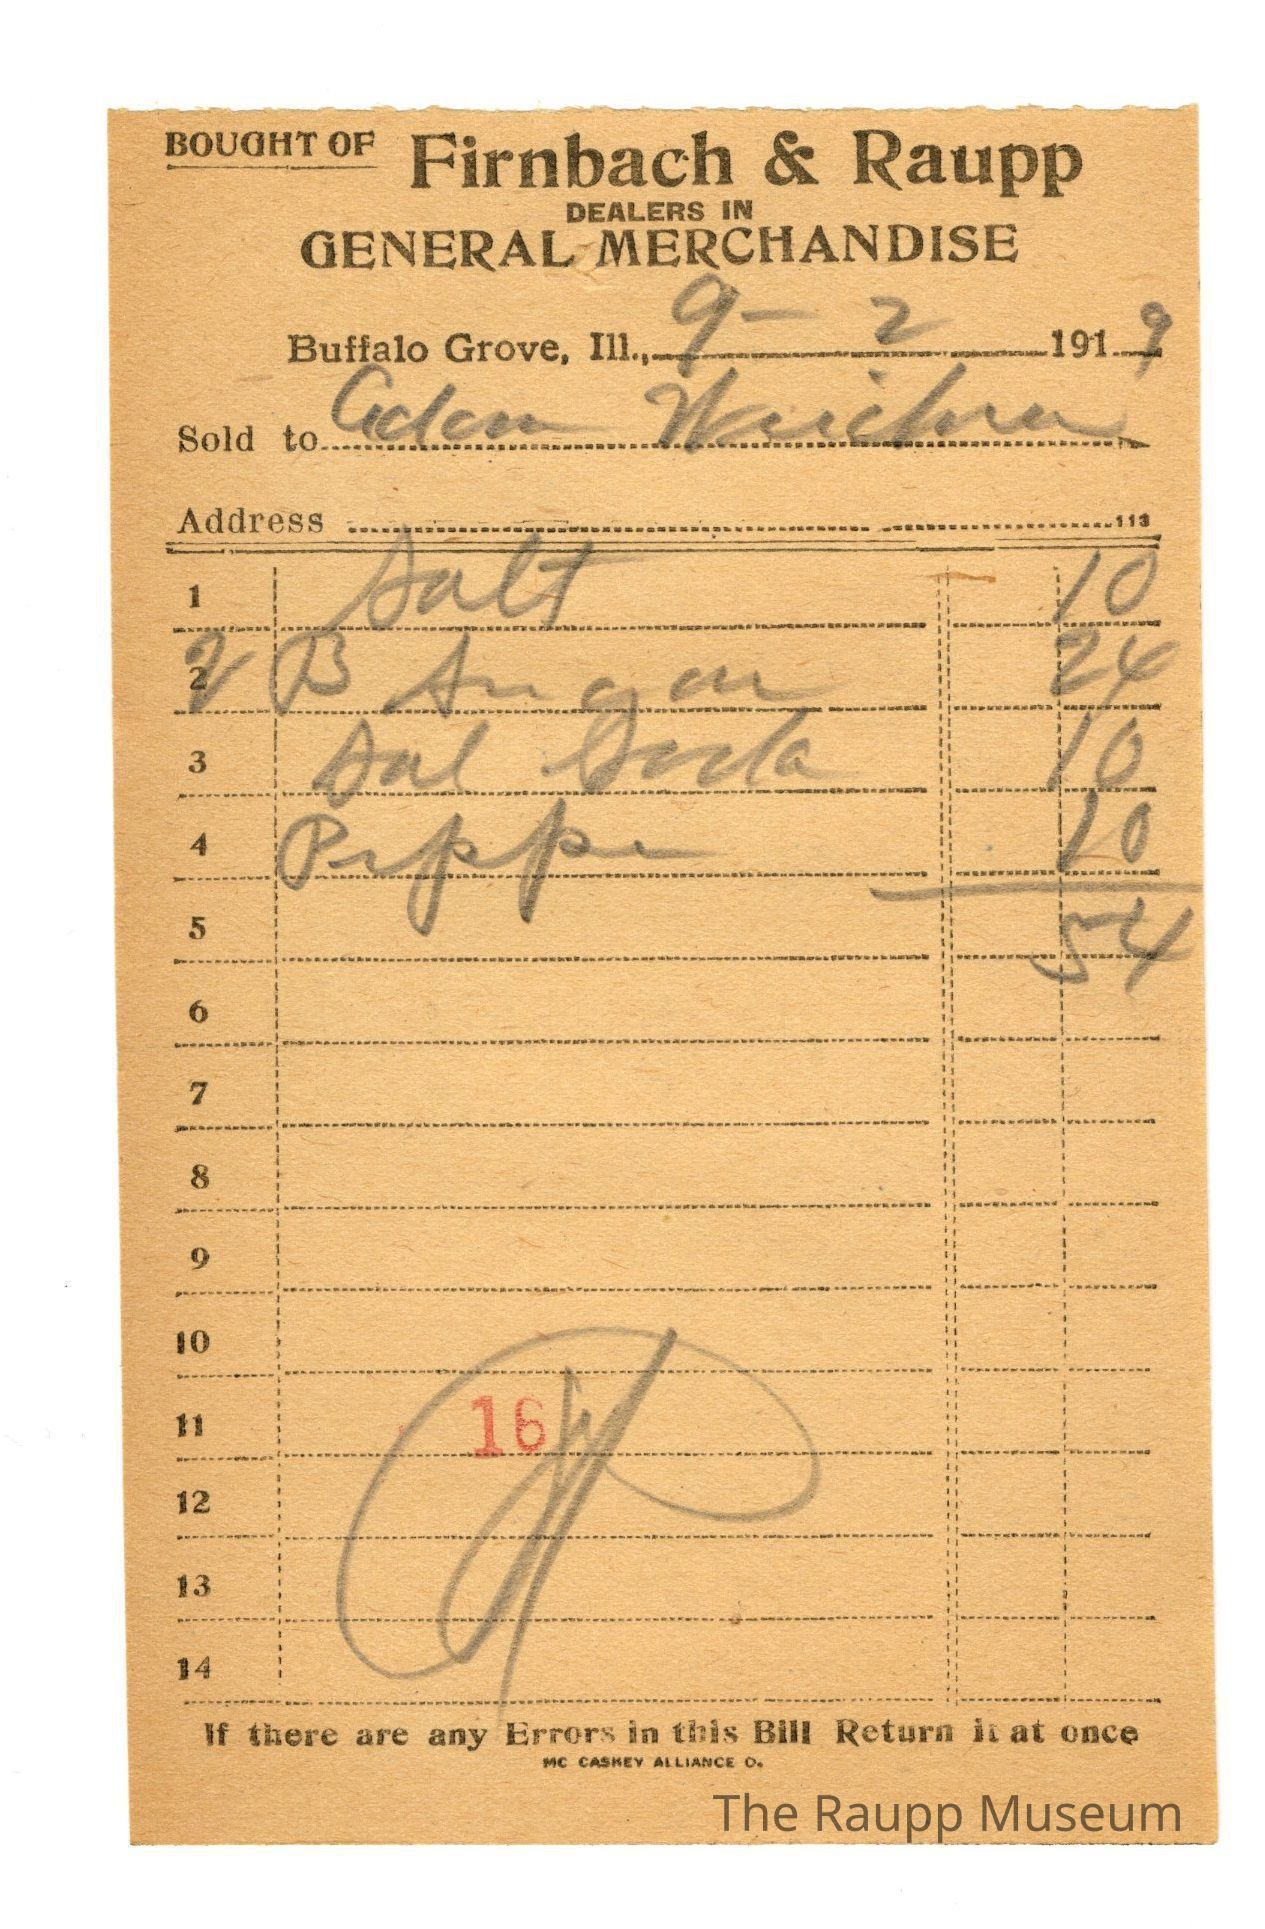 BOUGHT OF Firnbach & Raupp
DEALERS IN
GENERAL MERCHANDISE
Buffalo Grove, Ill., 9-2 1919
Sold to
Address 113
1 Salt 10
2 2 B Sugar 24
3 Sal Soda 10
4 Pepper 10
5 54
6
7
8
9
10
11 16
12
13
14
If there are any Errors in this Bill Return it at once
MC CASKEY ALLIANCE O.
The Raupp Museum